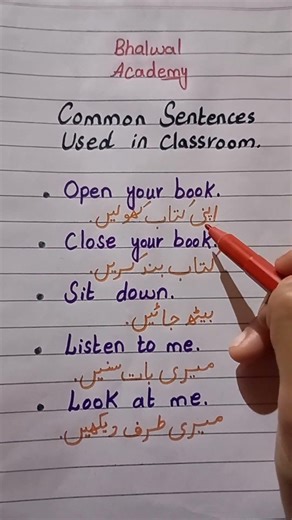 Bhalwal
Academy
Common Sentences
Used in Classroom.
• Open your book.
اپنی کتاب کھولیں.
• Close your book.
کتاب بند کریں.
• Sit down.
بیٹھ جائیں.
• Listen to me.
میری بات سنیں.
• Look at me.
میری طرف دیکھیں.